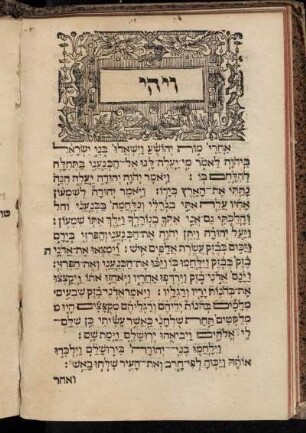 ויהי
אחרי מות יהושע וישאלו בני ישראל
ביהוה לאמר מי יעלה לנו אל הכנעני בתחלה
להלחם בו : ויאמר יהוה יהודה יעלה הנה
נתתי את הארץ בידו : ויאמר יהודה לשמעון
אחיו עלה אתי בגורלי ונלחמה בכנעני והל
והלכתי גם אני אתך בגורלך וילך אתו שמעון :
ויעל יהודה ויתן יהוה את הכנעני והפרזי בידם
ויכום בבזק עשרת אלפים איש : וימצאו את אדני ה
בזק בבזק וילחמו בו ויכו את הכנעני ואת הפרזי :
וינס אדני בזק וירדפו אחריו ויאחזו אתו ויקצצו
את בהנות ידיו ורגליו : ויאמר אדני בזק שבעים
מלכים בהנות ידיהם ורגליהם מקצצים היו מ
מלקטים תחת שלחני כאשר עשיתי כן שלם
לי אלהים ויביאהו ירושלם וימת שם :
וילחמו בני יהודה בירושלם וילכדו
אותה ויכוה לפי חרב ואת העיר שלחו באש :
ואחר